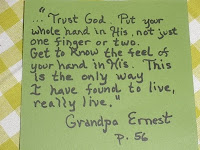 "... Trust God. Put your
whole hand in His, not just
one finger or two.
Get to know the feel of
your hand in His. This
is the only way
I have found to live,
really live."
Grandpa Ernest
p. 56